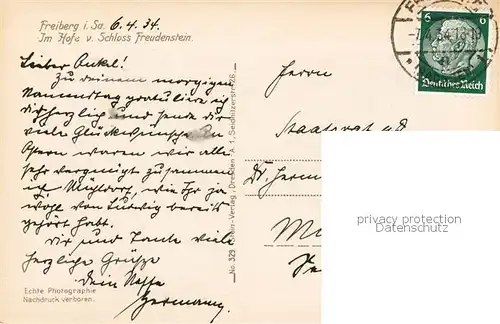 Freiberg i. Sa. 6.4.34.
Im Hofe v. Schloss Freudenstein.
Lieber Onkel!
Zu deinem morgigen
Namenstag gratuliere ich
dir herzlich und sende dir
viele Glückwünsche. An
Ostern waren wir alle
sehr vergnügt zusammen
in Mühldorf, wie Ihr ja
wohl von Ludwig bereits
gehört habt.
Dir und Tante viele
herzliche Grüsse
Dein Neffe
Hermann.
Echte Photographie
Nachdruck verboten.
No. 329 Verlag, Dresden-A. 1, Seidnitzerstraße 26
6 6
Deutsches Reich
-7.4.34.
Herrn
Staatsrat a.D.
Dr. Herm
Mü
privacy protection
Datenschutz